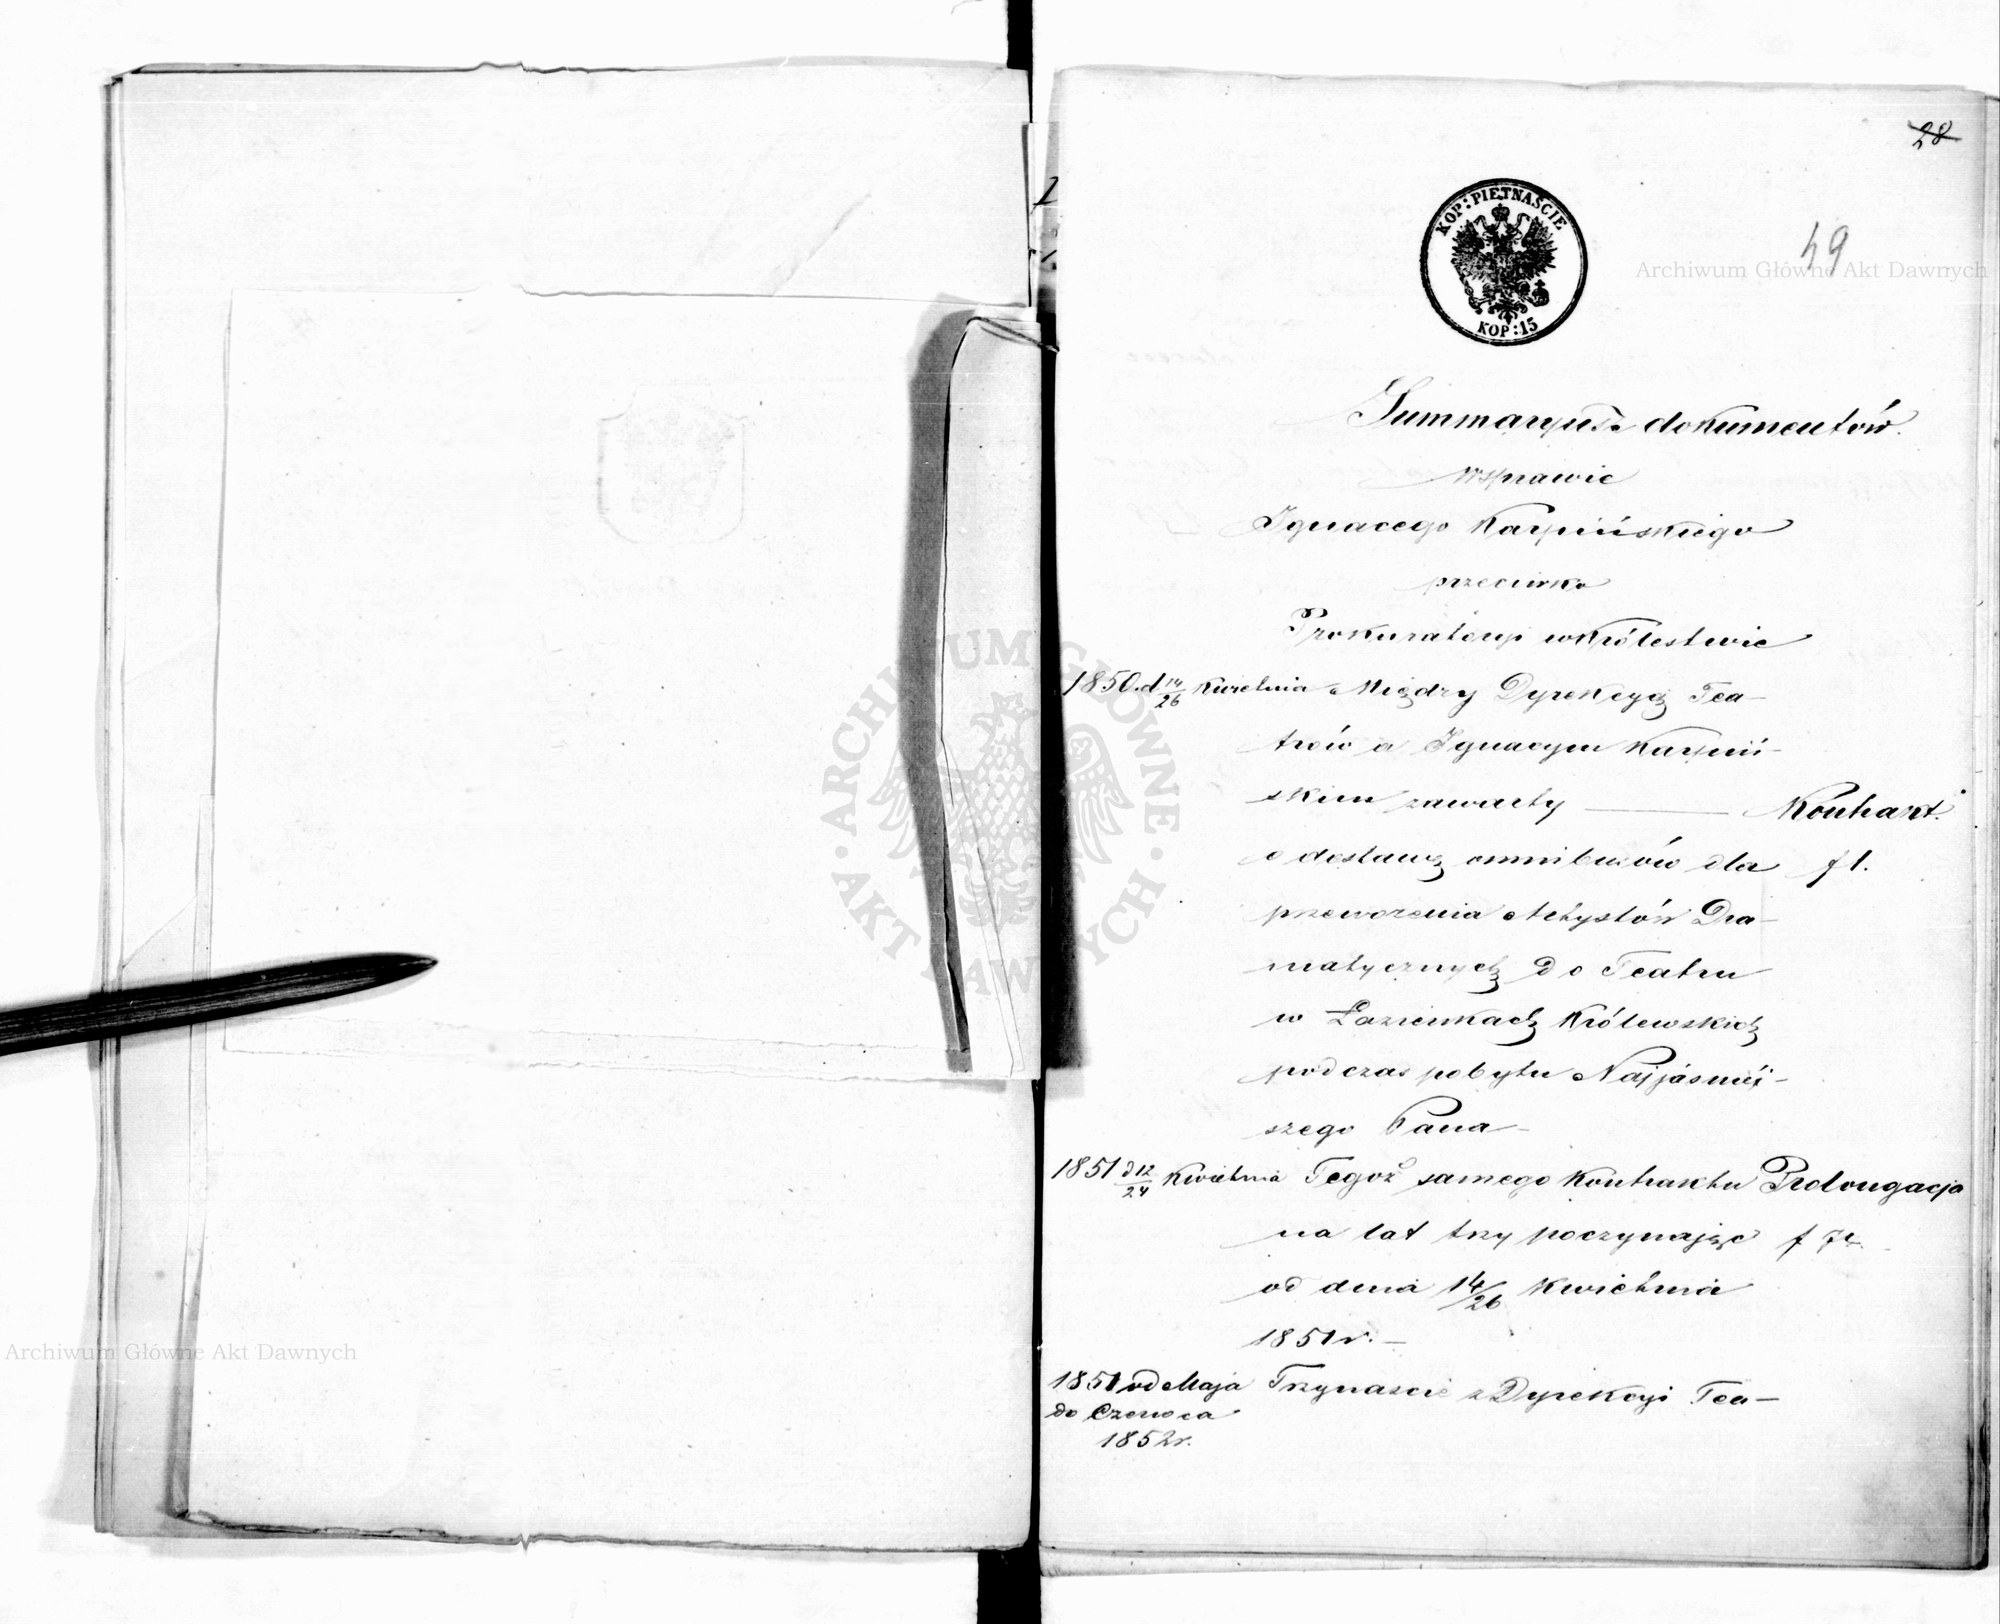 28
49
KOP: PIĘTNAŚCIE
KOP: 15
Archiwum Główne Akt Dawnych
Summaryusz dokumentów.
w sprawie
Ignacego Karpińskiego
przeciwko
Prokuratoryi w Królestwie
1850. d 14/26 Kwietnia Między Dyrekcyą Tea-
trów a Ignacym Karpiń-
skim zawarty — Kontrakt.
o dostawę omnibusów dla f 1.
przewożenia Artystów Dra-
matycznych do Teatru
w Łazienkach Królewskich
podczas pobytu Najjaśniej-
szego Pana
1851 d 12/24 Kwietnia Tegoż samego Kontraktu Prolongacja
na lat trzy poczynając f
od dnia 14/26 Kwietnia
1851 r. —
1851 od Maja Trzynaście z Dyrekcyi Tea-
do Czerwca
1852 r.
ARCHIWUM GŁÓWNE AKT DAWNYCH
Archiwum Główne Akt Dawnych